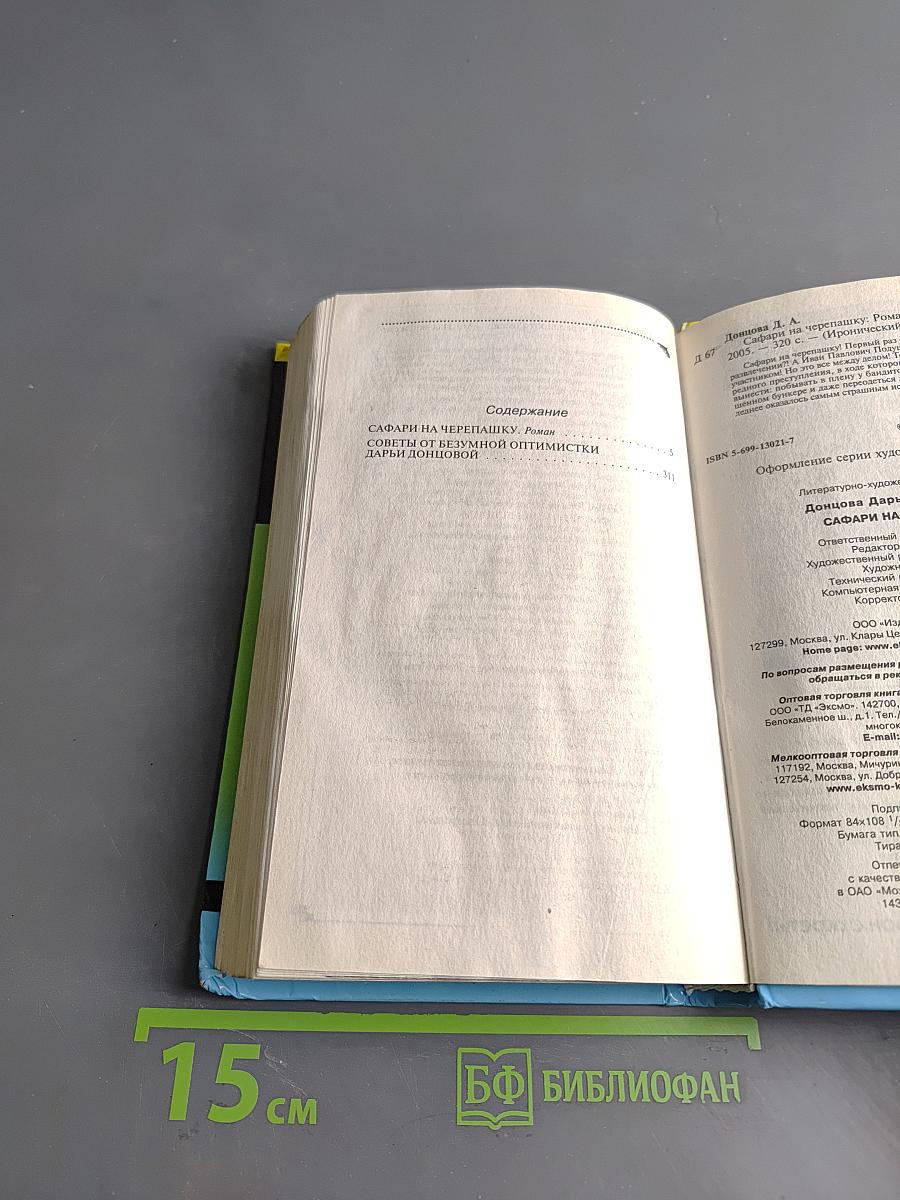 Содержание
САФАРИ НА ЧЕРЕПАШКУ. Роман . . . . . . . . . . . . 5
СОВЕТЫ ОТ БЕЗУМНОЙ ОПТИМИСТКИ
ДАРЬИ ДОНЦОВОЙ . . . . . . . . . . . . . . . . . . 311
Донцова Д. А.
Д 67 Сафари на черепашку: Рома
2005. — 320 с. — (Иронический
Сафари на черепашку! Первый раз
развлечении?! А Иван Павлович Подуш
участником! Но это все между делом! Т
редного преступления, в ходе которо
вынести: побывать в плену у бандито
шенном бункере и даже переодеться
леднее оказалось самым страшным ис
ISBN 5-699-13021-7
©
Оформление серии худо
Литературно-художе
Донцова Дарь
САФАРИ НА
Ответственный
Редактор
Художественный р
Художн
Технический
Компьютерная
Корректо
ООО «Изд
127299, Москва, ул. Клары Це
Home page: www.ek
По вопросам размещения р
обращаться в рек
Оптовая торговля книга
ООО «ТД «Эксмо». 142700,
Белокаменное ш., д.1. Тел./
многок
E-mail:
Мелкооптовая торговля
117192, Москва, Мичурин
127254, Москва, ул. Добр
www.eksmo-k
Подпи
Формат 84×108 1/
Бумага тип.
Тира
Отпеч
с качеств
в ОАО «Мож
143
15 см
БФ БИБЛИОФАН